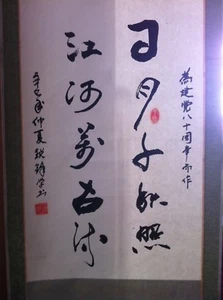 为建党八十周年而作
日月千秋照
江河万古流
辛巳年仲夏